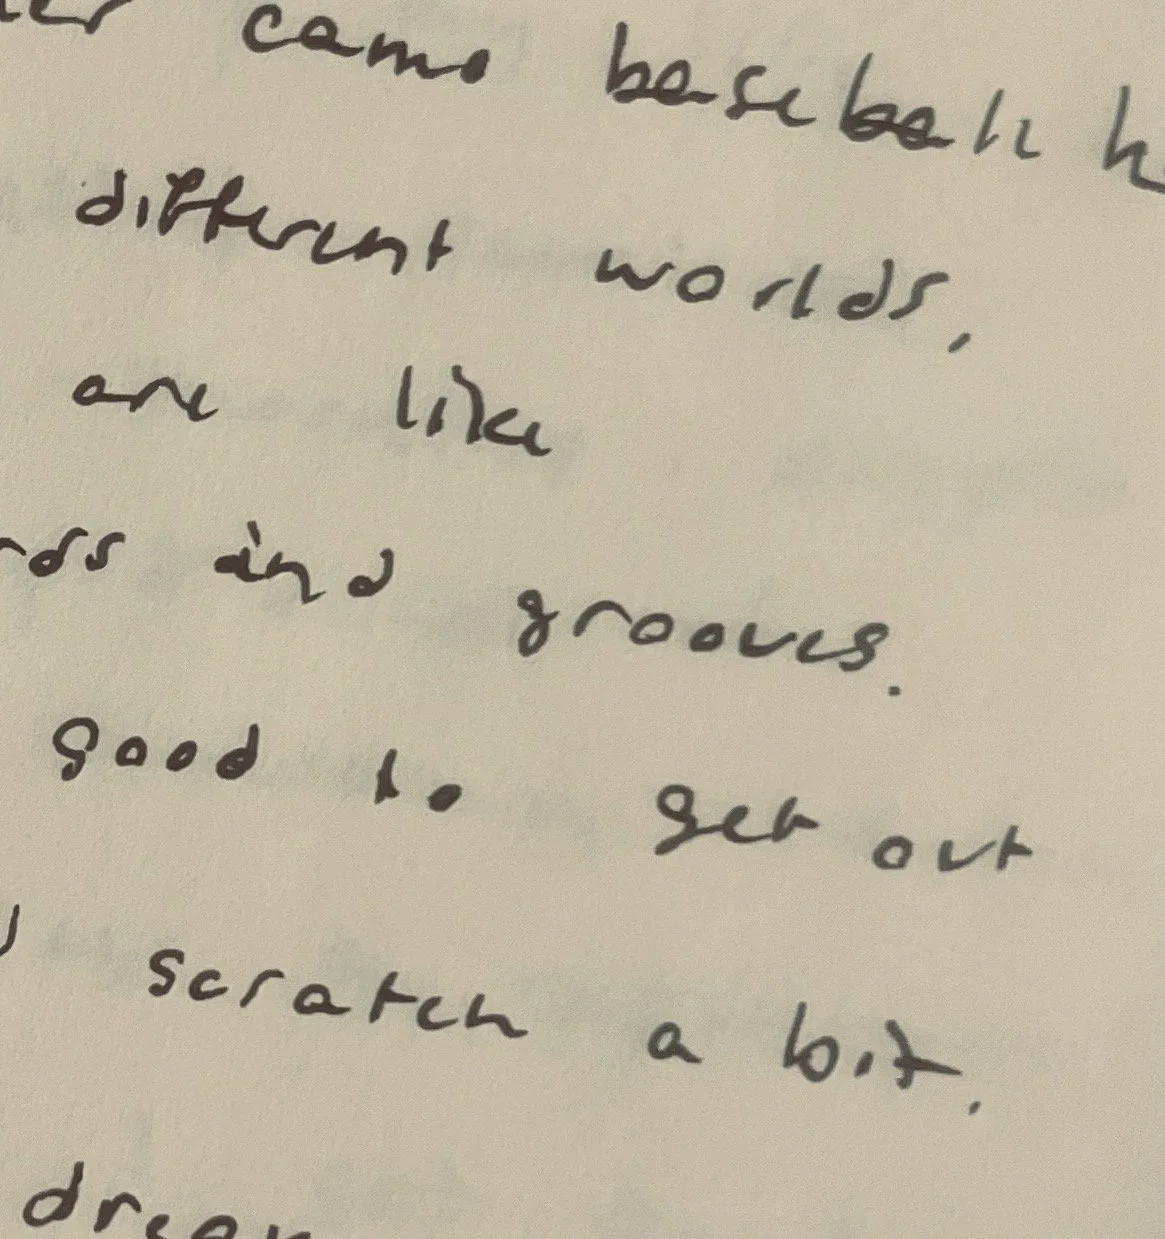 camo baseball
different worlds,
are like
and grooves.
good to get out
scratch a bit.